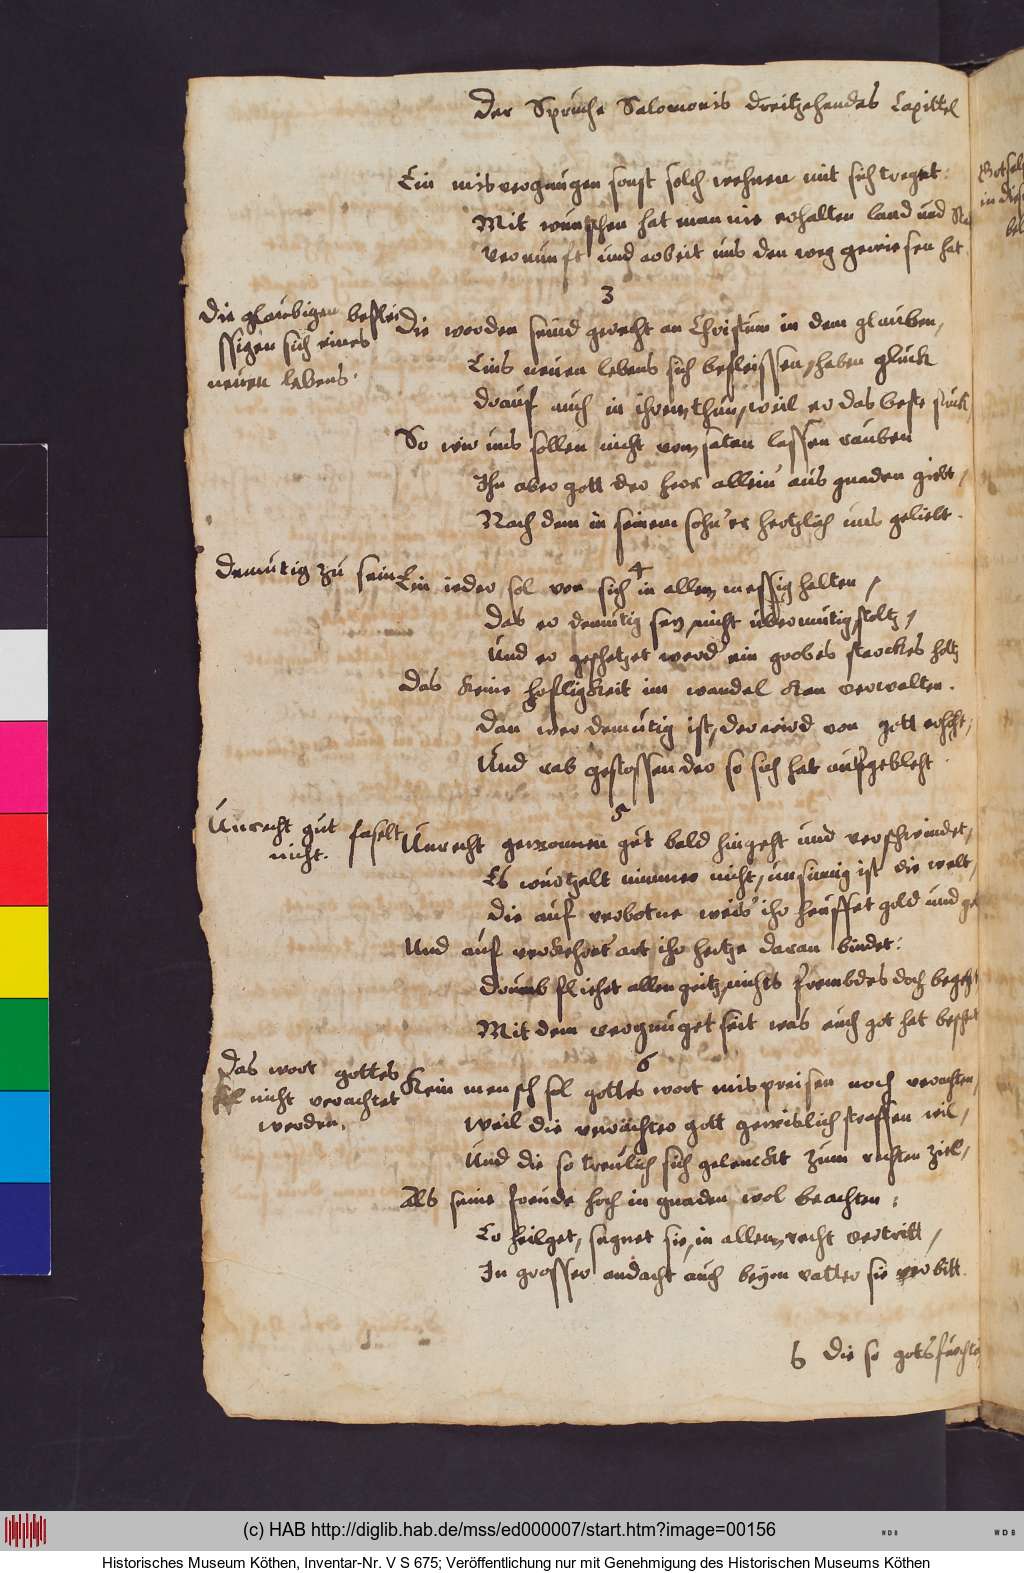 Der Sprüche Salomonis dreitzehendes Capittel
Ein misvergnugen sonst solch wehnen mit sich treget:
Mit wunschen hat man nie erhalten land und
Vernunft und arbeit uns den weg gewiesen hat.
3
Die glaubigen beflei
ssigen sich eines
neuen lebens.
Die werden seind gerecht an Christum in dem glauben,
Eins neuen lebens sich befleissen, haben gluck
Drauf auch in ihrem thun, weil er das beste stuck
So wir uns sollen nicht vom satan lassen rauben
Ihn aber gott der herr allein aus gnaden giebt,
Nach dem in seinem sohn er hertzlich uns geliebt.
4
Demutig zu sein
Ein ieder sol von sich in allem messig halten,
Das er demutig sey, nicht ubermutig, stoltz,
Und er geschetzet werd ein grobes starckes holtz
Das keine hofligkeit im wandel kan verwalten.
Dan wer demutig ist, der wird von gott erhoht,
Und rab gestossen der so sich hat aufgebleht.
5
Unrecht gut faselt
nicht.
Unrecht gewonnen gut bald hingeht und verschwindet,
Es wurtzelt nimmer nicht, unsinnig ist die welt,
Die auf verbotne weis' ihr heuffet gold und
Und auf verkehrt' art ihr hertze daran bindet:
Drumb fliehet allen geitz, nichts frembdes doch
Mit dem vergnuget seit was euch got hat
6
Das wort gottes
sol nicht verachtet
werden.
Kein mensch sol gottes wort mispreisen noch verachten,
Weil die verachter gott gewislich straffen wil,
Und die so treulich sich gelenckt zum rechten ziel,
Als seine freunde hoch in gnaden wol beachten:
Er heilget, segnet sie, in allem recht vertritt,
In grosser andacht auch beym vatter sie verbitt.
Die so
(c) HAB http://diglib.hab.de/mss/ed000007/start.htm?image=00156
WDB
WDB
Historisches Museum Köthen, Inventar-Nr. V S 675; Veröffentlichung nur mit Genehmigung des Historischen Museums Köthen